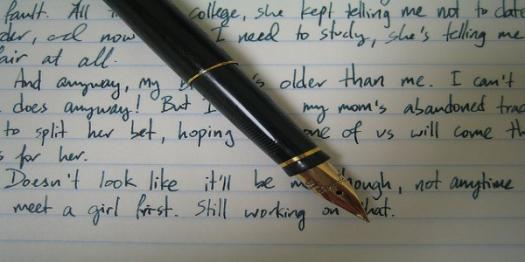 fault. All college, she kept telling me not to date
der, and now I need to study, she's telling me
air at all.
And anyway, my older than me. I can't
does anyway! But I my mom's abandoned
to split her bet, hoping one of us will come
s for her.
Doesn't look like it'll be me though, not anytime
meet a girl first. Still working on that.